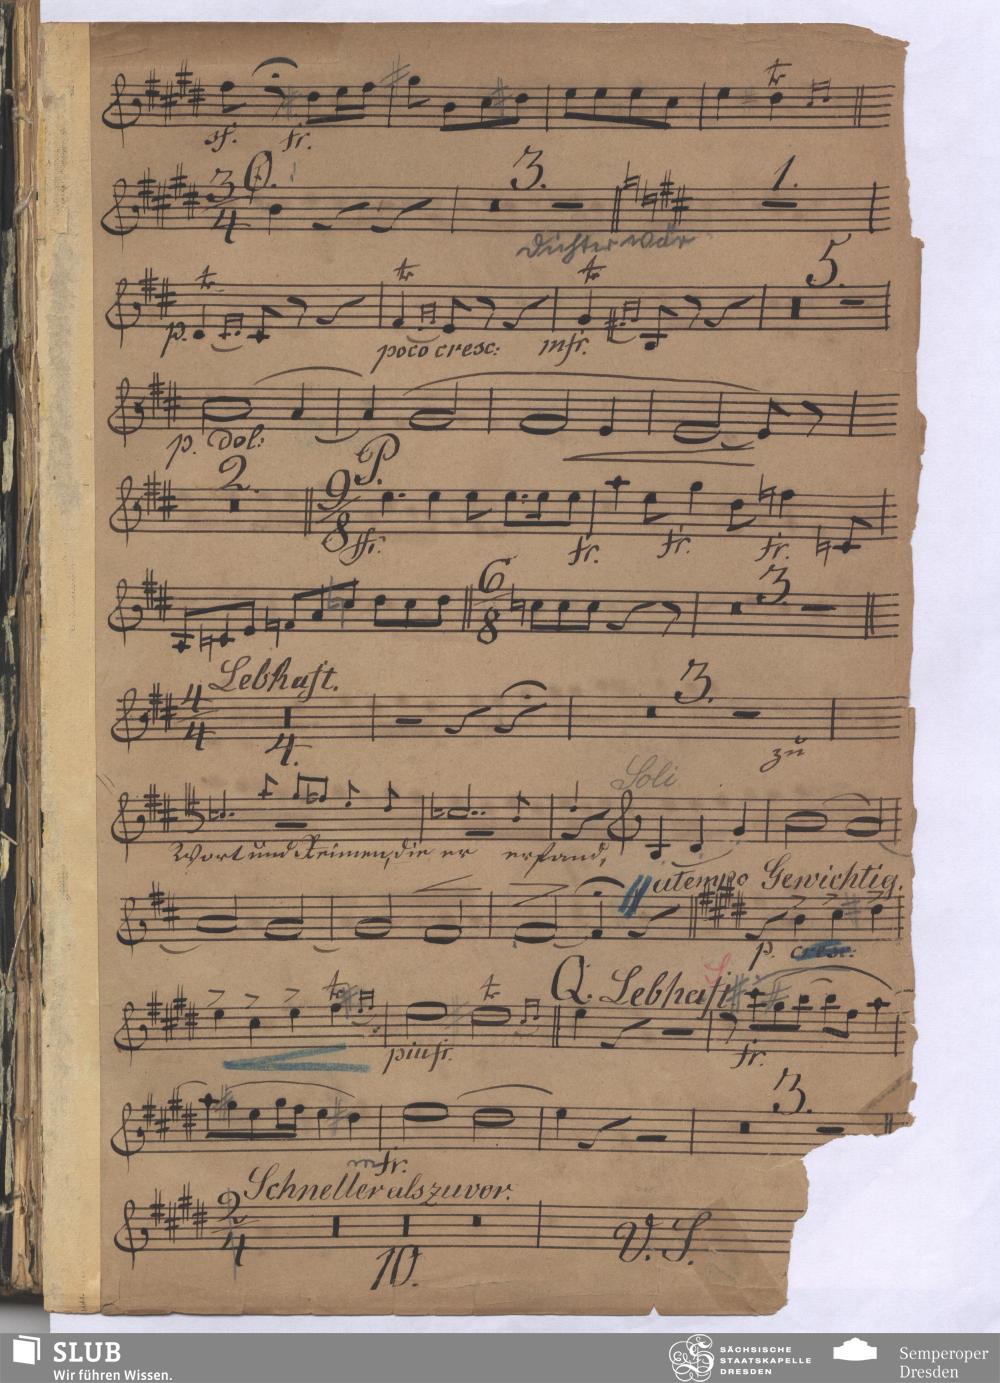 sf. fr. tr
3/4 O. 3. 1.
Dichter wär
tr tr tr 5.
p. poco cresc: mfr.
p. dol:
2. P. 9/8
ffr. fr. fr. fr.
6/8 3.
Lebhaft.
4/4 4. 3.
zu
Soli
Wort und Reimen, die er erfand,
atempo Gewichtig.
p. cresc:
tr tr Q. Lebhaft
piu fr. fr.
3.
mfr.
Schneller als zuvor.
2/4 10. V. S.
SLUB
Wir führen Wissen.
SÄCHSISCHE
STAATSKAPELLE
DRESDEN
Semperoper
Dresden